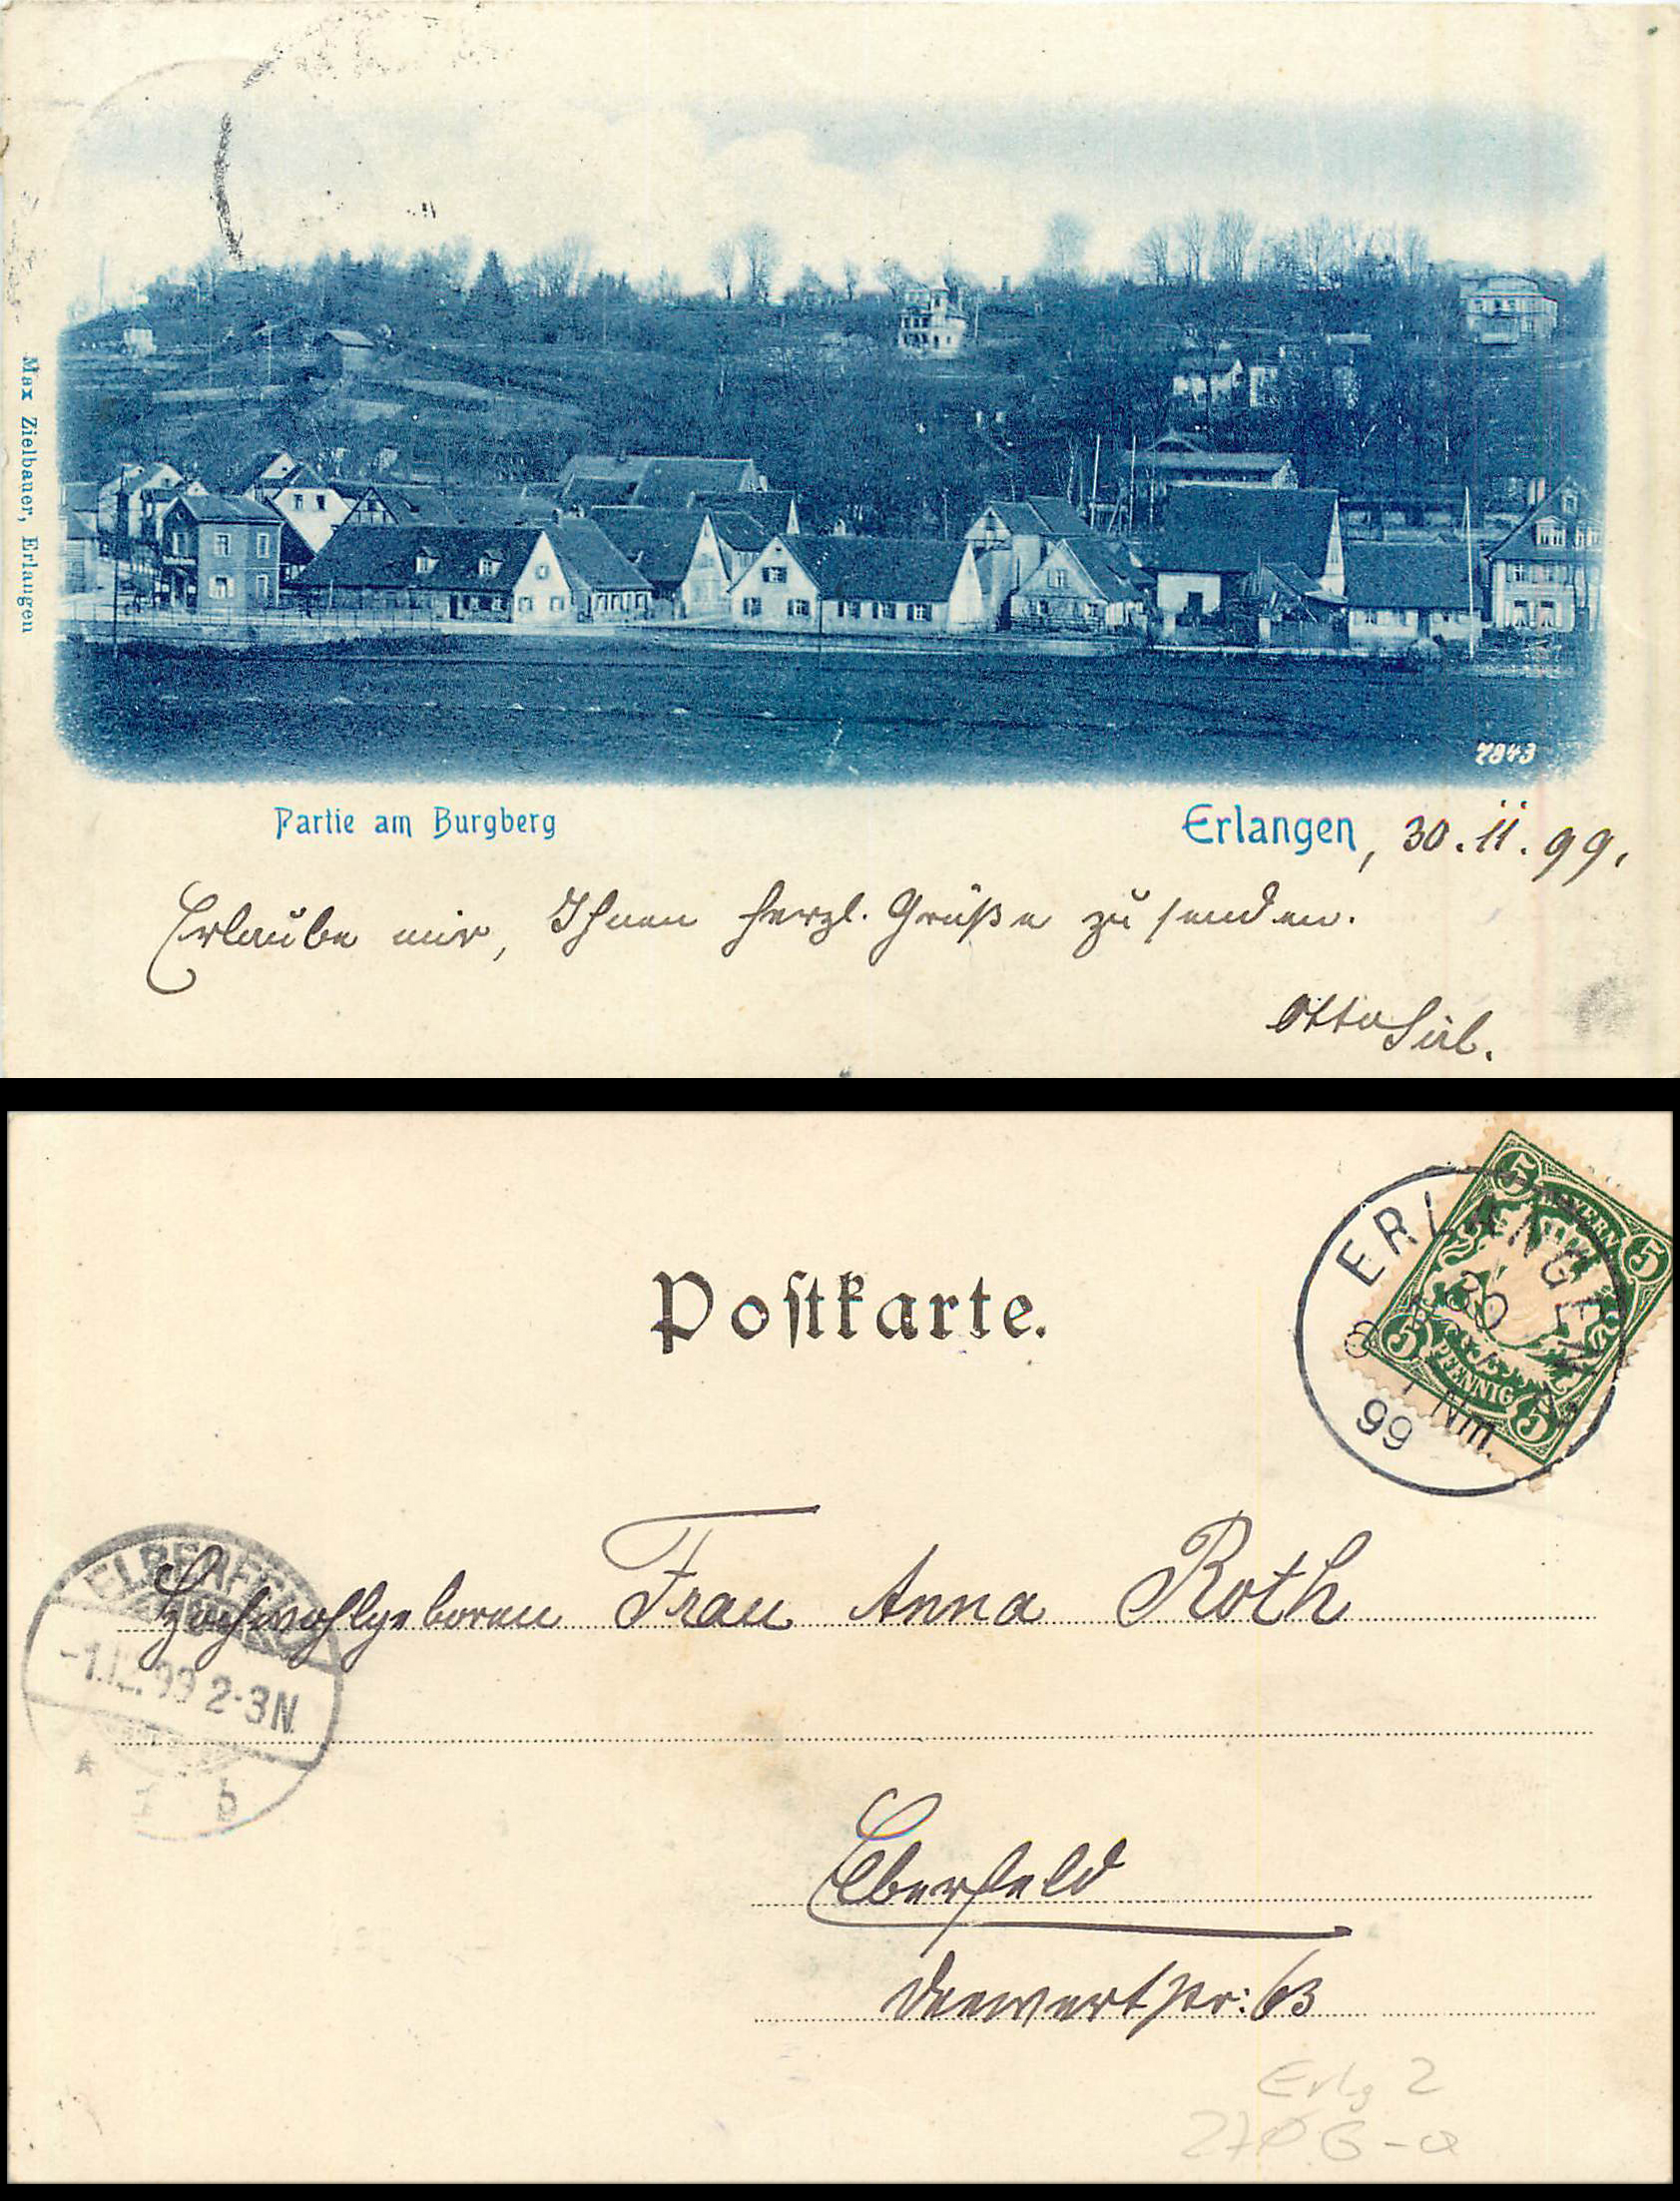 Max Zielbauer, Erlangen
7843
Partie am Burgberg
Erlangen, 30. 11. 99.
Erlaube mir, Ihnen herzl. Grüße zu senden.
Otto
Postkarte.
5 BAYERN 5
5 PFENNIG 5
ERLANGEN
30
Nm.
99
ELBERFELD
-1.12.99 2-3N.
* 1 b
Hochwohlgeboren Frau Anna Roth
Elberfeld
Deewertstr: 63
Erlg 2